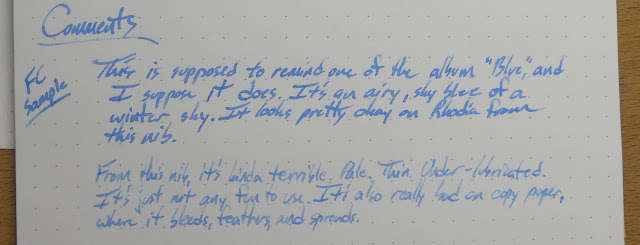 Comments
FC
Sample
This is supposed to remind one of the album "Blue", and
I suppose it does. It's an airy, sky blue of a
winter sky. It looks pretty okay on Rhodia from
this nib.
From this nib, it's kinda terrible. Pale. Thin. Under-lubricated.
It's just not any fun to use. It's also really bad on copy paper,
where it bleeds, feathers, and spreads.